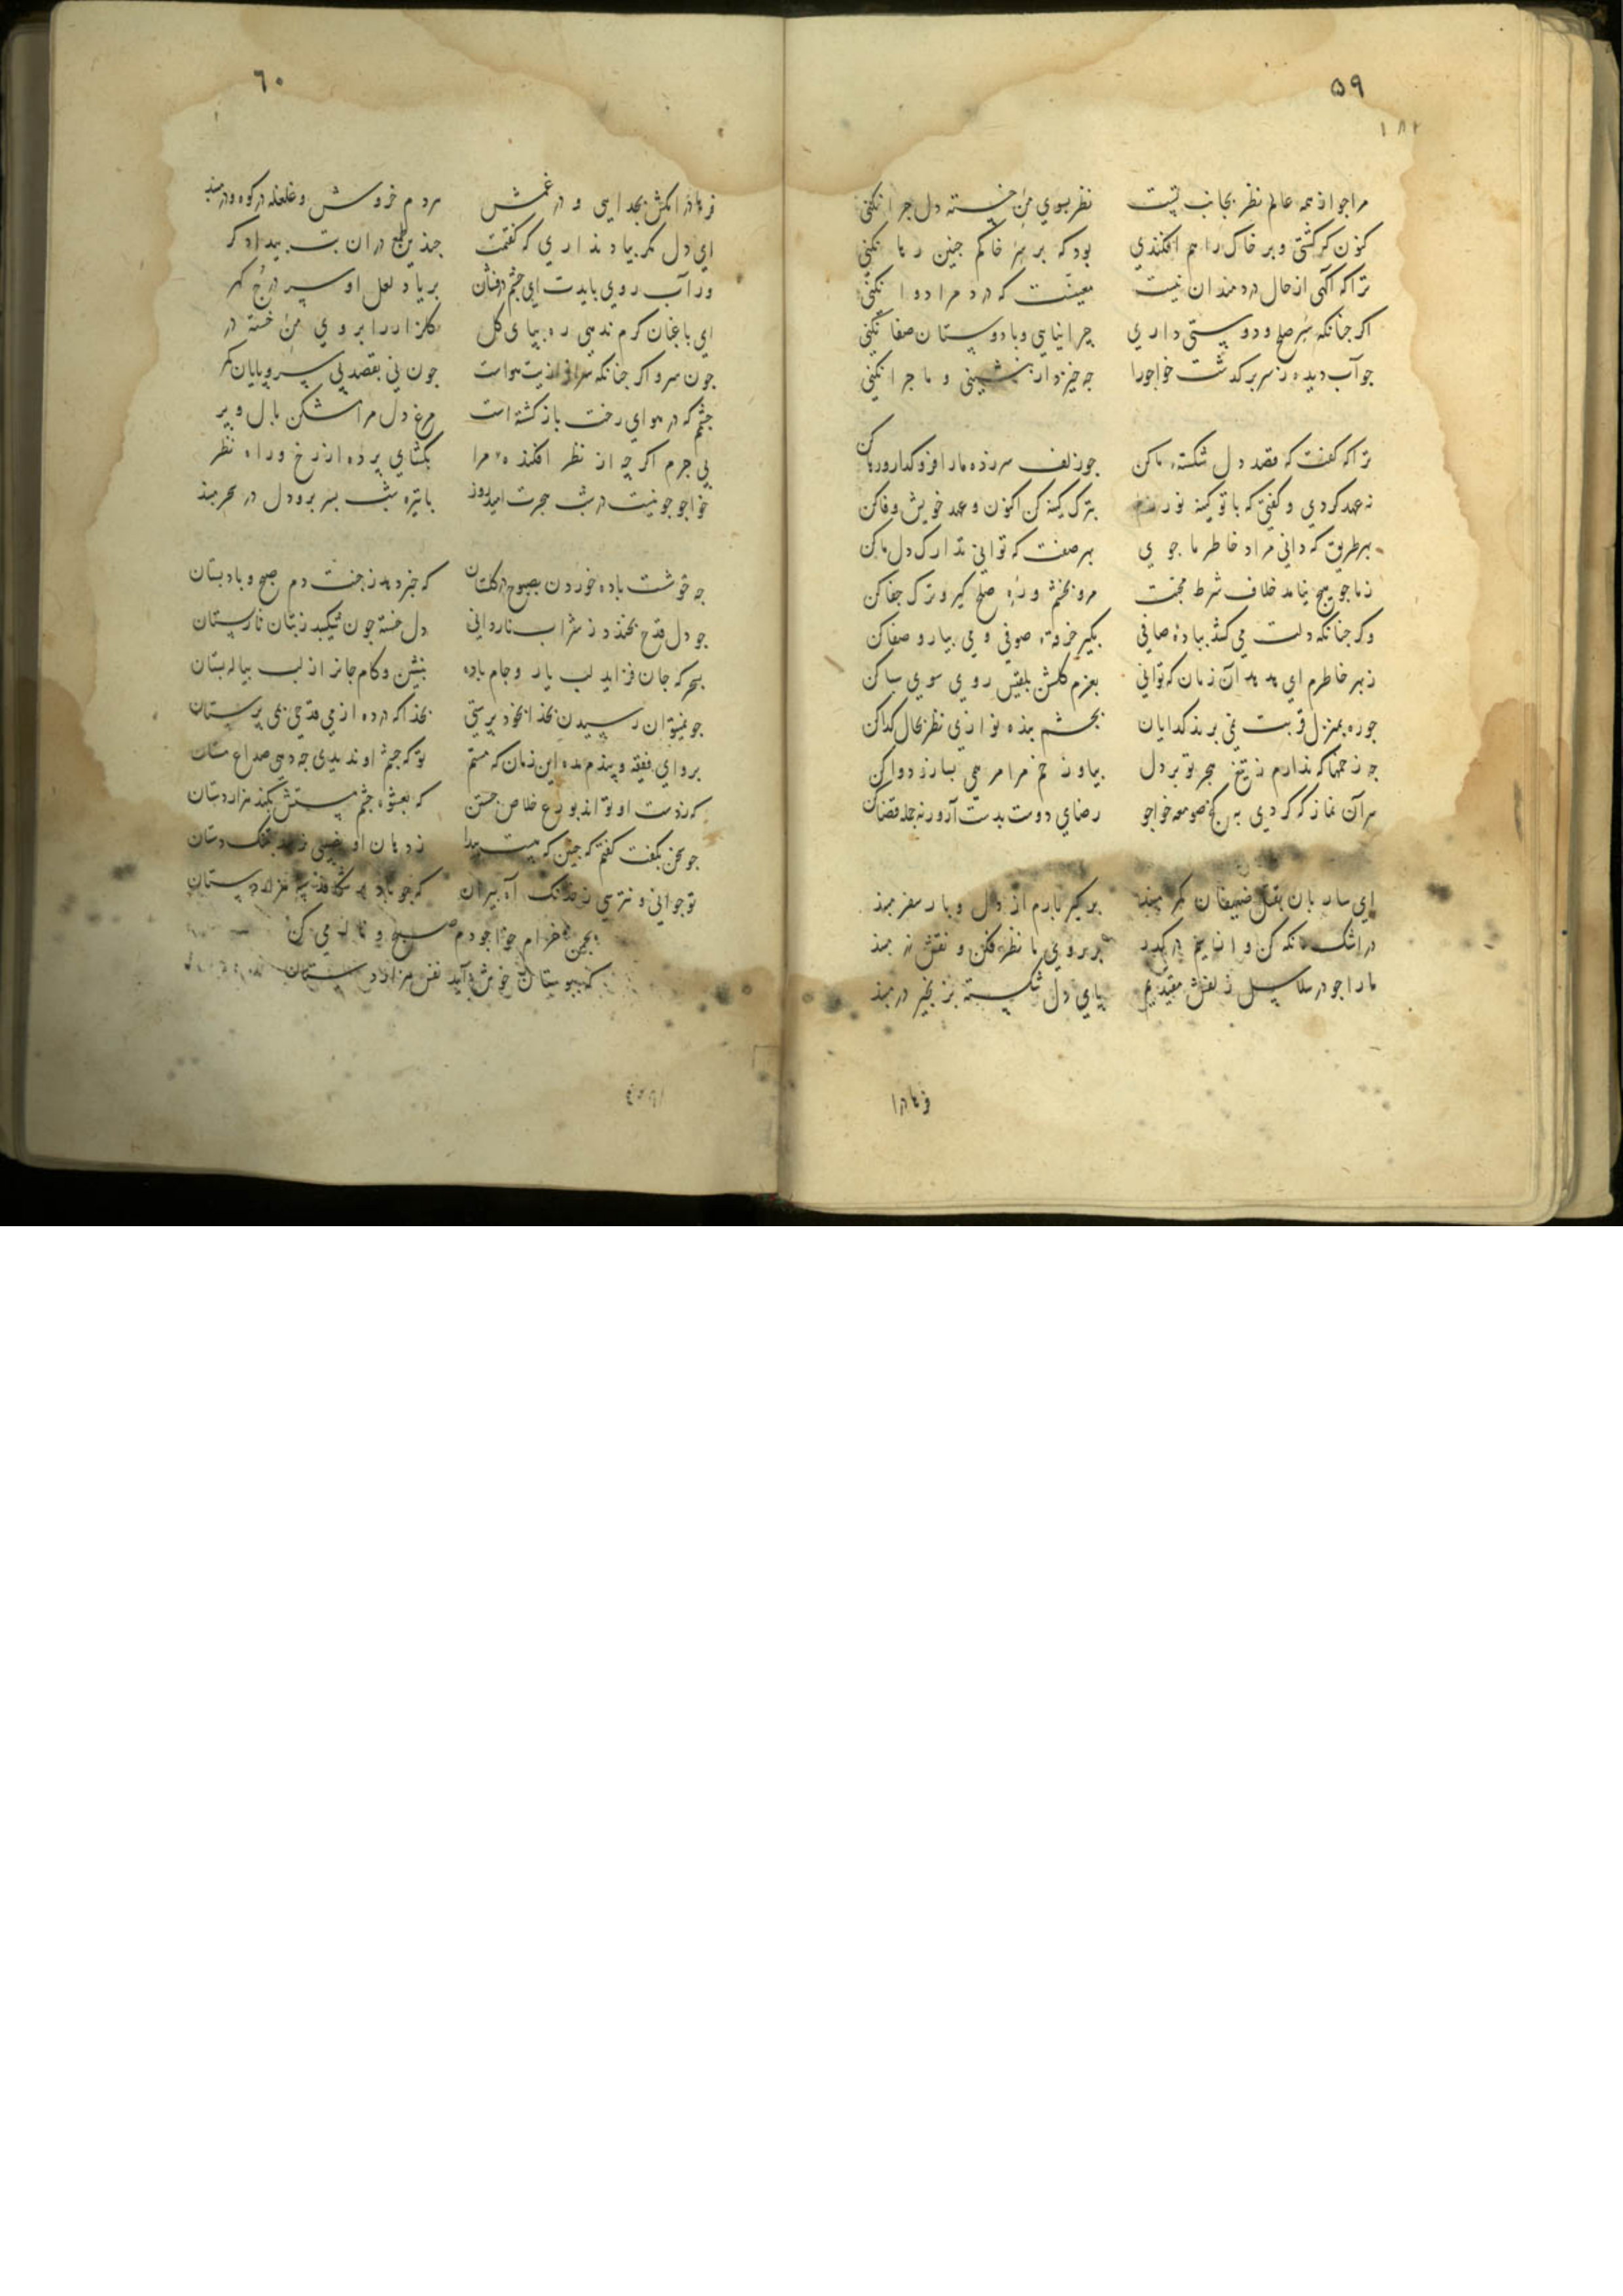 ۵۹
۱۸۲
مرا جو از همه عالم نظر بجانب تست نظر بسوی من خسته دل جرا نکنی
کنون که کشتی و بر خاک راهم افکندی بود که بر سر خاکم جنین رها نکنی
ترا که آکهی از حال دردمندان نیست معینست که درد مرا دوا نکنی
اکر جنانکه سر صلح و دوستی داری چرا نیایی و با دوستان صفا نکنی
جو آب دیده ز سر بر کذشت خواجو را جه خیزد ار بنشینی و ماجرا نکنی
ترا که کفت که قصد دل شکسته ما کن جو زلف سر زده ما را فرو کذار و رها کن
نه عهد کردی و کفتی که با تو کینه نورزم بترک کینه کن اکنون و عهد خویش وفا کن
بهر طریق که دانی مراد خاطر ما جوی بهر صفت که توانی تدارک دل ما کن
ز ما جو هیچ نیامد خلاف شرط محبت مرو بخشم و ره صلح کیر و ترک جفا کن
وکر جنانکه دلت می کشد بباده صافی بکیر خرقه صوفی و می بیار و صفا کن
ز بهر خاطرم ای هدهد آن زمان که توانی بعزم کلشن بلقیس روی سوی سبا کن
جو ره بمنزل قربت نمی برند کدایان بچشم بنده نوازی نظر بحال کدا کن
جه زخمها که ندارم ز تیغ هجر تو بر دل بیا و زخم مرا مرهمی بساز و دوا کن
هر آن نماز که کردی به کنج صومعه خواجو رضای دوست بدست آر ورنه جمله قضا کن
ای ساربان بقتل ضعیفان کمر مبند بر کیر بارم از دل و بار سفر مبند
در اشک ما نکه کن و از سیم در کذر بر روی ما نظر فکن و نقش زر مبند
ما را جو در سلاسل زلفش مقیدیم پای دل شکسته بزنجیر در مبند
فرهاد را
۶۰
فرهاد را مکش بجدایی و در غمش مردم خروش و غلغله در کوه و در مبند
ای دل مکر بیاد نداری که کفتمت جندین طمع در ان بت بیدادکر
ور آب روی بایدت ای چشم درفشان بر یاد لعل او سر درج کهر
ای باغبان کرم ندهی ره بپای کل کلزار را بروی من خسته در
جون سرو اکر جنانکه سرافرازیت هواست جون نی بقصد بی سر و پایان کمر
جشمم که در هوای رخت باز کشته است مرغ دل مرا مشکن بال و پر
بی جرم اکر چه از نظر افکنده مرا بکشای پرده از رخ و راه نظر
خواجو جو نیست در شب هجرت امید روز با تیره شب بسر بر و دل در سحر مبند
جه خوشست باده خوردن بصبوح در کلستان که خبر دهد ز جنت دم صبح و باد بستان
جو دل قدح بخندد ز شراب ناردانی دل خسته جون شکیبد ز بتان نارپستان
سحر که جان فزاید لب یار و جام باده بنشین و کام جانرا ز لب پیاله بستان
جو نمیتوان رسیدن بخدا ز خود پرستی بخدا که در ده از می قدحی بمی پرستان
برو ای فقیه و پندم مده این زمان که مستم تو که جشم او ندیدی جه دهی صداع مستان
که ز دست او تواند بورع خلاص جستن که بعشوه جشم مستش بکند هزار دستان
جو سخن نکفت کفتم که جنین که نیست پیدا ز دهان او نصیبی نرسد بتنک دستان
تو جوانی و نترسی ز خدنک آه پیران که جو باد بر شکافد سپه هزار دستان
بجمن خرام خواجو دم صبح و ناله می کن
که ببوستان خوش آید نفس هزار دستان